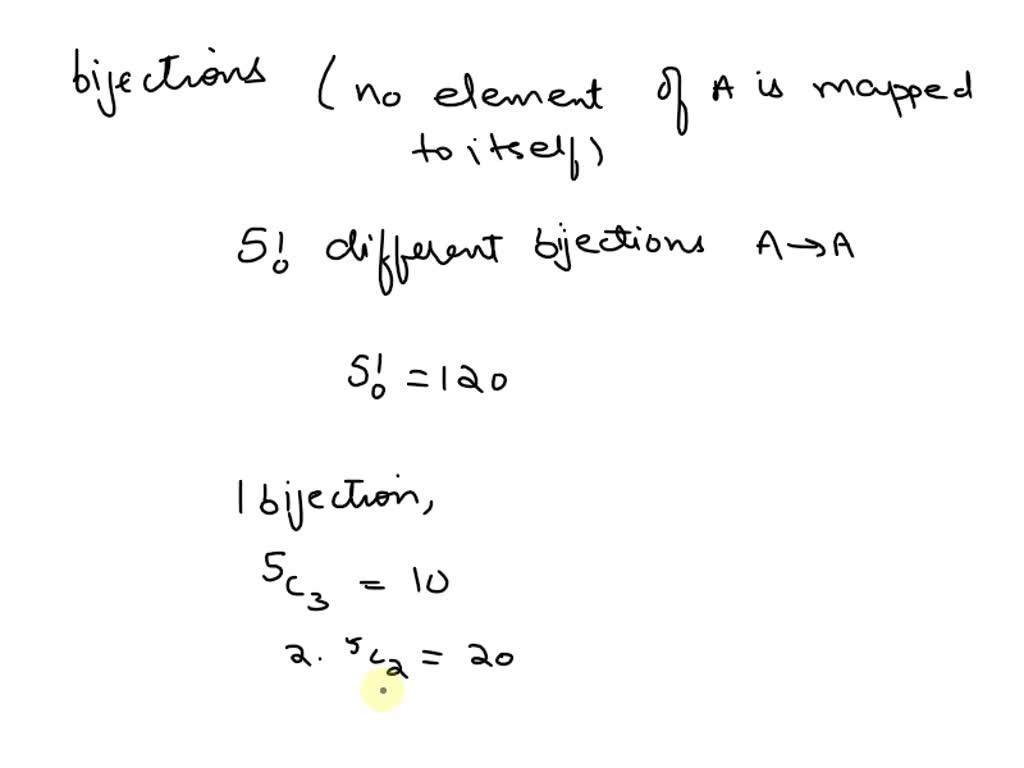 bijections (no element of A is mapped
to itself)
5! different bijections A→A
5! = 120
1 bijection,
⁵C₃ = 10
2. ⁵C₂ = 20